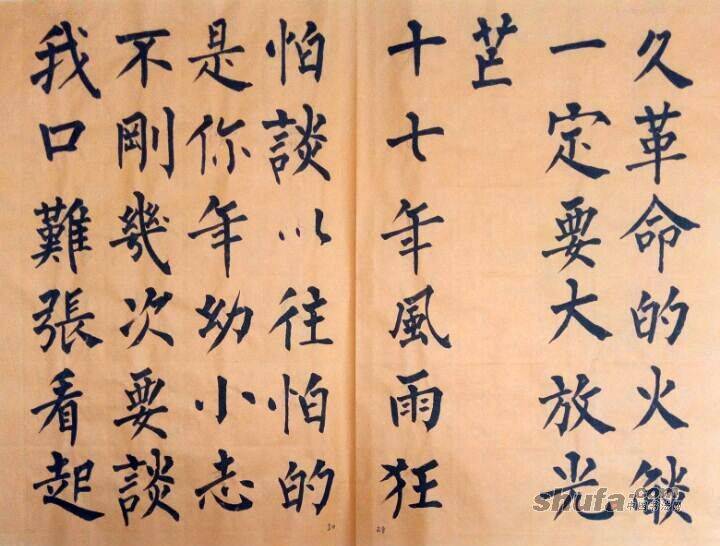 久革命的火燄
一定要大放光
芒
十七年風雨狂
怕談以往怕的
是你年幼小志
不剛幾次要談
我口難張看起
29
30
shufa